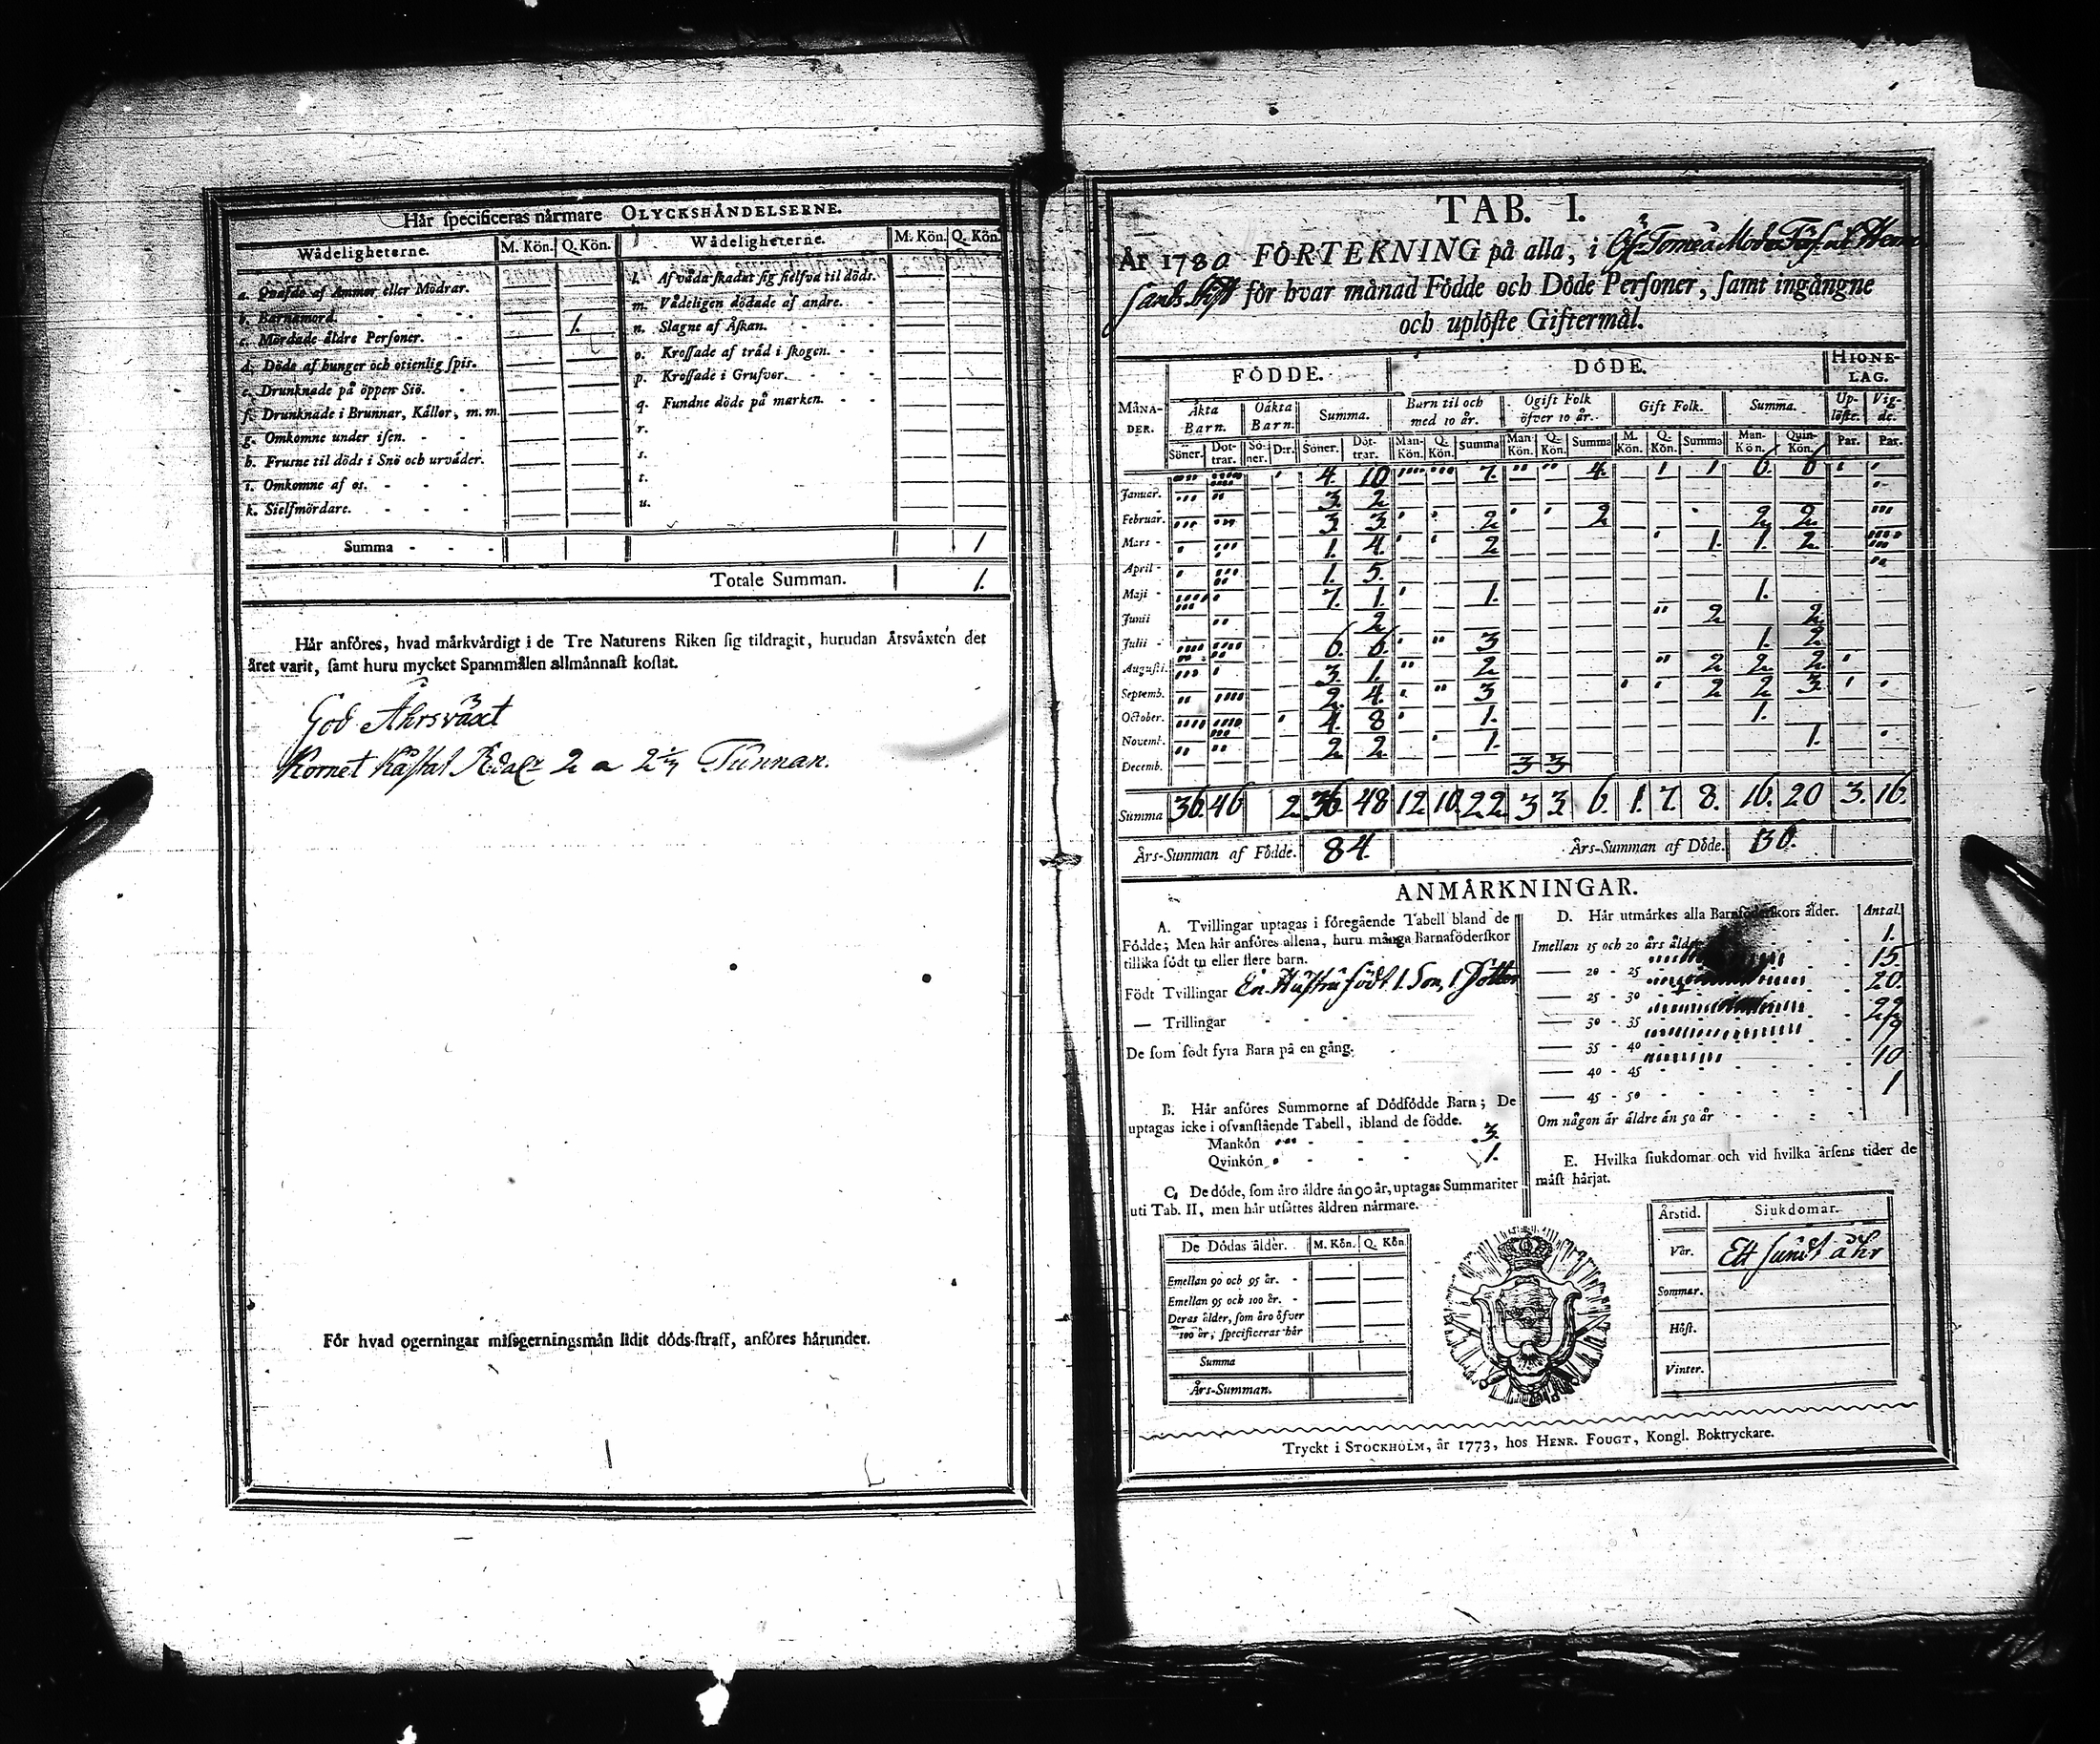 Hår ſpecificeras nårmare OLYCKSHÅNDELSERNE.
Wådeligheterne. M. Kön. Q. Kön. Wådeligheterne. M. Kön. Q. Kön.
a. Qvafde af Ammor eller Mödrar.
b. Barnamord. - - - - 1.
c. Mördade åldre Perſoner. -
d. Döde af hunger och otienlig ſpis.
e. Drunknade på öppen Siö. -
f. Drunknade i Brunnar, Kållor, m. m.
g. Omkomne under iſen. - -
h. Frusne til döds i Snö och urvåder.
i. Omkomne af os. - - - -
k. Sielfmördare. - - - -
l. Af våda ſkadat ſig ſielfva til döds.
m. Vådeligen dödade af andre. - -
n. Slagne af Åſkan. - - -
o. Kroſſade af tråd i ſkogen. - -
p. Kroſſade i Grufvor. - - -
q. Fundne döde på marken. - -
r.
s.
t.
u.
Summa - - - - 1
Totale Summan. 1.
Hår anföres, hvad mårkvårdigt i de Tre Naturens Riken ſig tildragit, hurudan Årsvåxten det
året varit, ſamt huru mycket Spannmålen allmånnaſt koſtat.
God Åhrsväxt
Kornet kåstat Rdalr 2 a 2½ Tunnan.
För hvad ogerningar miſsgerningsmån lidit döds-ſtraff, anföres hårunder.
TAB. I.
År 1780 FÖRTEKNING på alla, i Öfr Torneå Moder Förs. af Herno
sands Stift för hvar månad Födde och Döde Perſoner, ſamt ingångne
och uplöſte Giftermål.
MÅNADER. FÖDDE. DÖDE. HIONELAG.
Åkta Barn. Oåkta Barn. Summa. Barn til och med 10 år. Ogift Folk öfver 10 år. Gift Folk. Summa. Uplöſte. Vigde.
Söner. Dottrar. Söner. D:r. Söner. Döttrar. Man-Kön. Q. Kön. Summa Man-Kön. Q. Kön. Summa M. Kön. Q. Kön. Summa Man-Kön. Quin-Kön. Par. Par.
Januar. 4. 10 7. 4. 1 1 6. 6
Februar. 3. 2.
Mars - 3. 3. 2 2 2. 2.
April - 1. 4. 2 1. 1. 2.
Maji - 1. 5.
Junii 7. 1. 1. 1.
Julii - 2 2 2.
Auguſti. 6. 6. 3 1. 2.
Septemb. 3. 1. 2 2 2. 2.
October. 2. 4. 3 2 2 3.
Novemb. 4. 8 1. 1.
Decemb. 2 2. 1. 3 3 1.
Summa 36. 46 2. 36. 48 12. 10. 22. 3 3. 6. 1. 7. 8. 16. 20 3. 16.
Års-Summan af Födde. 84. Års-Summan af Döde. 36.
ANMÅRKNINGAR.
A. Tvillingar uptagas i föregående Tabell bland de
Födde; Men hår anföres allena, huru många Barnaföderſkor
tillika födt tu eller flere barn.
Födt Tvillingar En Hustru födt 1. Son, 1. Dotter
— Trillingar - - -
De ſom födt fyra Barn på en gång.
B. Hår anföres Summorne af Dödfödde Barn; De
uptagas icke i ofvanſtående Tabell, ibland de födde.
Mankön - - - 3.
Qvinkön - - - 1.
C. De döde, ſom åro åldre ån 90 år, uptagas Summariter
uti Tab. II, men hår utſåttes åldren nårmare.
De Dödas ålder. M. Kön. Q. Kön.
Emellan 90 och 95 år. -
Emellan 95 och 100 år. -
Deras ålder, ſom åro öfver
100 år, ſpecificeras hår
Summa
Års-Summan.
D. Hår utmårkes alla Barnföderſkors ålder. Antal.
Imellan 15 och 20 års ålder 1.
— 20 - 25 15
— 25 - 30 20.
— 30 - 35 22
— 35 - 40 19
— 40 - 45 10
— 45 - 50 1
Om någon år åldre ån 50 år - - -
E. Hvilka ſiukdomar och vid hvilka årſens tider de
måſt hårjat.
Årstid. Siukdomar.
Vår. Ett sundt åhr
Sommar.
Höſt.
Vinter.
Tryckt i STOCKHOLM, år 1773, hos HENR. FOUGT, Kongl. Boktryckare.